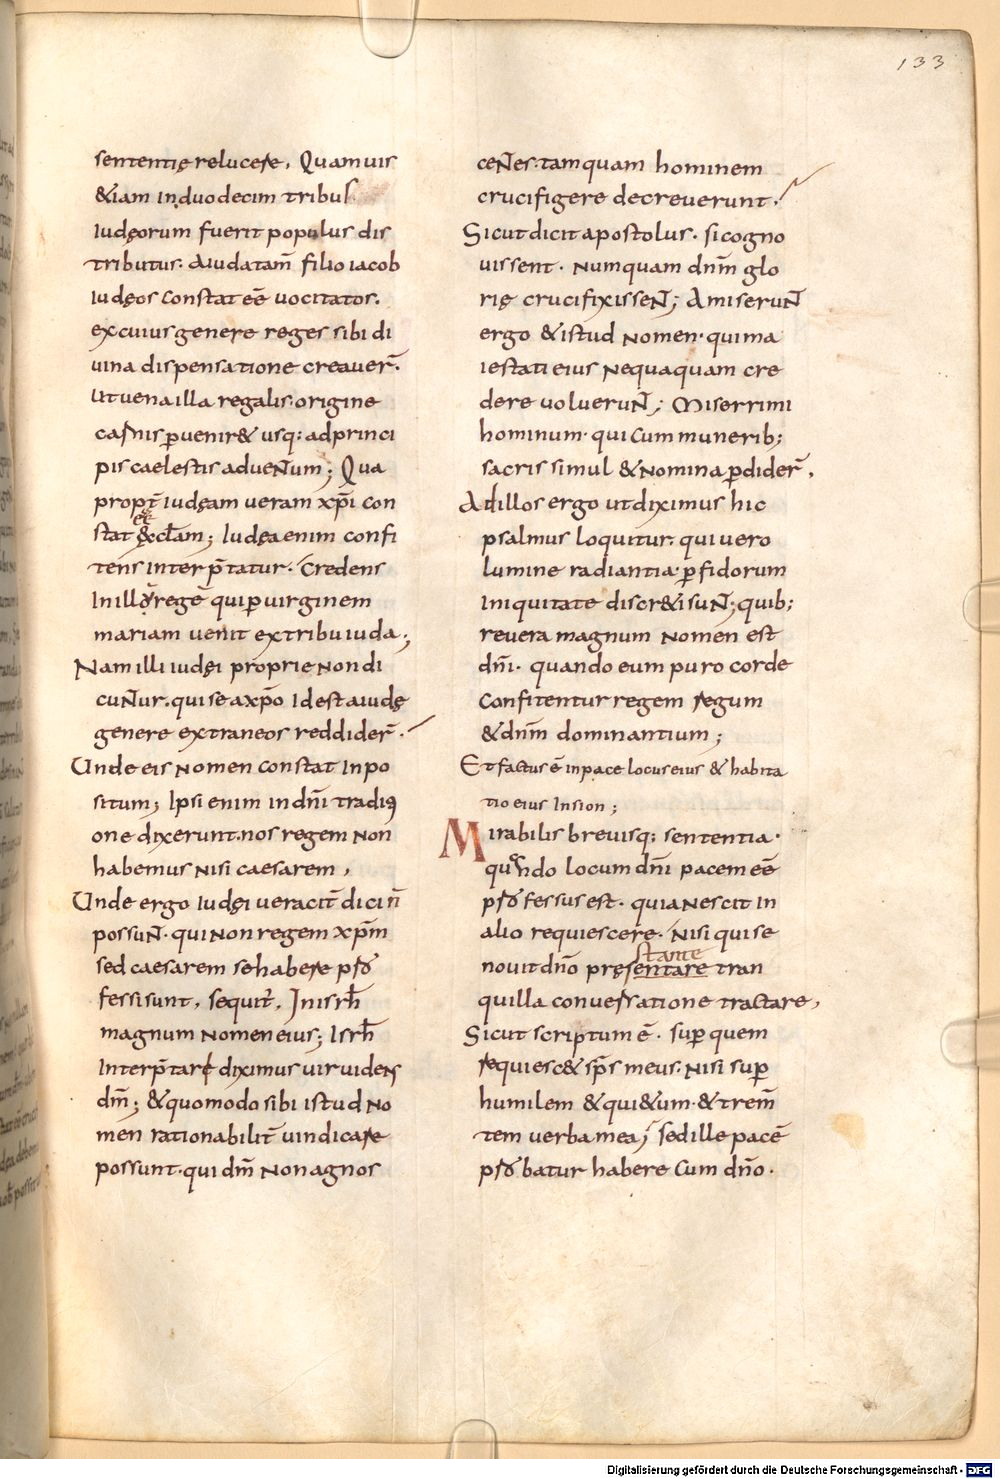 133
sententię relucere. Quamuis
&iam in duodecim tribus
iudęorum fuerit populus dis
tributus. A iuda tam̄ filio iacob
iudęos constat eē uocitatos.
ex cuius genere reges sibi di
uina dispensatione creauer̄.
ut uena illa regalis origine
carnis p̱uenir& usq; ad princi
pis caelestis aduentum; Qua
propt̄ iudęam ueram xp̄i con
stat eē ęcl̄am; Iudęa enim confi
tens interp̄tatur. Credens
in illū regē qui p̱ uirginem
mariam uenit ex tribu iuda;
Nam illi iudęi proprie non di
cuntur. qui se a xp̄o id est a iudę
genere extraneos reddider̄.
Unde eis nomen constat inpo
situm; Ipsi enim in dn̄i traditi
one dixerunt. nos regem non
habemus nisi caesarem,
Unde ergo iudęi ueracit̄ dici n̄
possunt. qui non regem xp̄m
sed caesarem se habere p̱fes
fessi sunt. sequit̄. In isrl̄
magnum nomen eius; Isrl̄
interp̄tare diximus uir uidens
dm̄; & quomodo sibi istud no
men rationabilit̄ uindicare
possunt. qui dm̄ non agnos
centes. tamquam hominem
crucifigere decreuerunt.
Sicut dicit apostolus. si cogno
uissent. numquam dnm̄ glo
rię crucifixissent; Amiserunt
ergo & istud nomen. qui ma
iestati eius nequaquam cre
dere uoluerunt; Miserrimi
hominum. qui cum munerib;
sacris simul & nomina p̱dider̄.
Ad illos ergo ut diximus hic
psalmus loquitur. qui uero
lumine radianti a p̱fidorum
iniquitate discr&i sunt; quib;
reuera magnum nomen est
dn̄i. quando eum puro corde
confitentur regem regum
& dnm̄ dominantium;
Et factus ē in pace locus eius & habita
tio eius in sion;
Mirabilis breuisq; sententia.
quando locum dn̄i pacem eē
professus est. quia nescit in
alio requiescere. Nisi qui se
stante
nouit dn̄o pręsentare tran
quilla conuersatione tractare,
Sicut scriptum ē. sup̱ quem
requiesc& sp̄s meus. nisi sup̱
humilem & qui&um. & trem̄
tem uerba mea; sed ille pacē
probatur habere cum dn̄o.
Digitalisierung gefördert durch die Deutsche Forschungsgemeinschaft - DFG